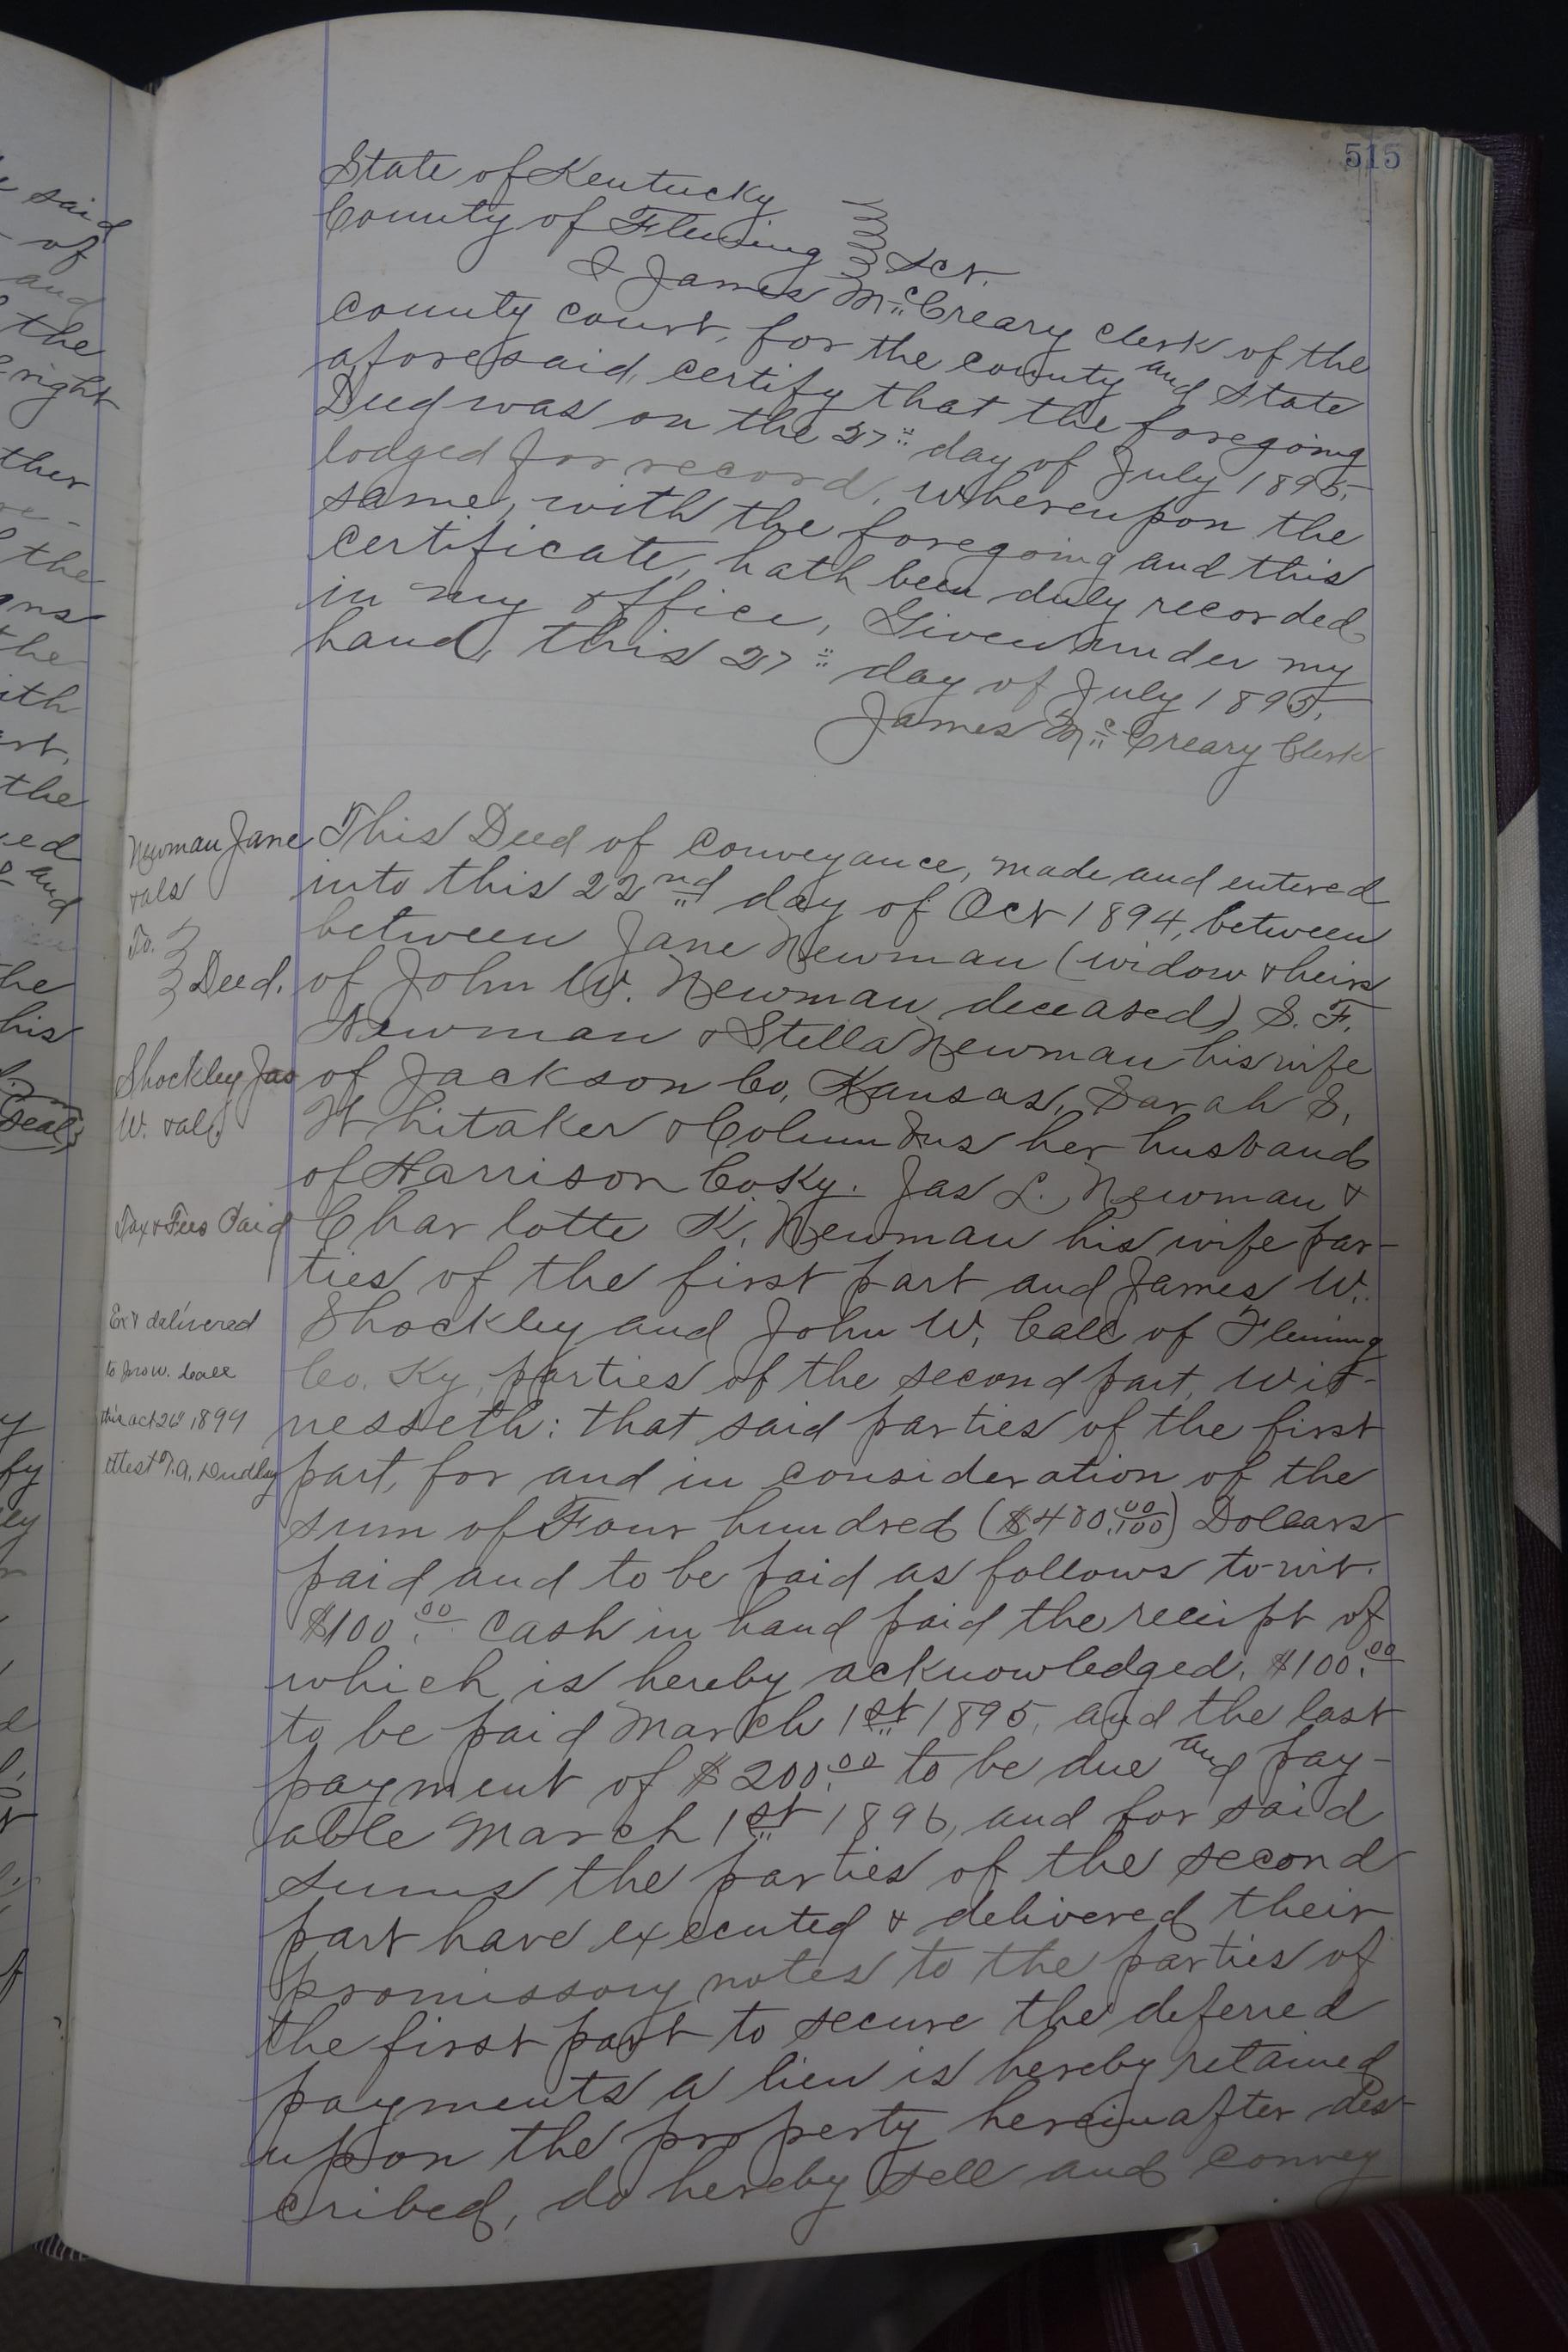 515
State of Kentucky
County of Fleming Sct.
I James McCreary clerk of the
county court, for the county and State
aforesaid, certify that the foregoing
Deed was on the 27" day of July 1895,
lodged for record, whereupon the
same, with the foregoing and this
certificate, hath been duly recorded
in my office, Given under my
hand, this 27" day of July 1895,
James McCreary Clerk
Newman Jane
&als
To.
Deed.
Shockley Jas
W. &als
Tax & Fees Paid
Ex'd delivered
to Jno W. Call
this Oct 26" 1899
attest T.A. Dudley
This Deed of conveyance, made and entered
into this 22nd day of Oct 1894, between
between Jane Newman (widow & heirs
of John W. Newman deceased) S. F.
Newman & Stella Newman his wife
of Jackson Co, Kansas, Sarah S,
Whitaker & Columbus her husband
of Harrison Co Ky. Jas L. Newman &
Charlotte K. Newman his wife par-
ties of the first part and James W.
Shockley and John W, Call of Fleming
Co. Ky, parties of the second part, Wit-
nesseth: that said parties of the first
part, for and in consideration of the
sum of Four hundred ($400.00/100) Dollars
paid and to be paid as follows to-wit.
$100.00 cash in hand paid the receipt of
which is hereby acknowledged, $100.00
to be paid March 1st 1895, and the last
payment of $200.00 to be due and pay-
able March 1st 1896, and for said
sums the parties of the second
part have executed & delivered their
promissory notes to the parties of
the first part to secure the deferred
payments a lien is hereby retained
upon the property hereinafter des-
cribed, do hereby sell and convey